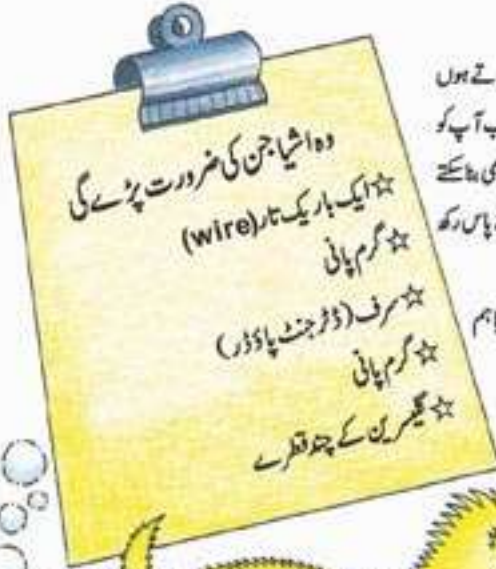 وہ اشیا جن کی ضرورت پڑے گی
☆ ایک باریک تار (wire)
☆ گرم پانی
☆ سرف (ڈٹرجنٹ پاؤڈر)
☆ گرم پانی
☆ گلیسرین کے چند قطرے
تے ہوں
ب آپ کو
ھی بنا سکتے
پاس رکھ
ہم